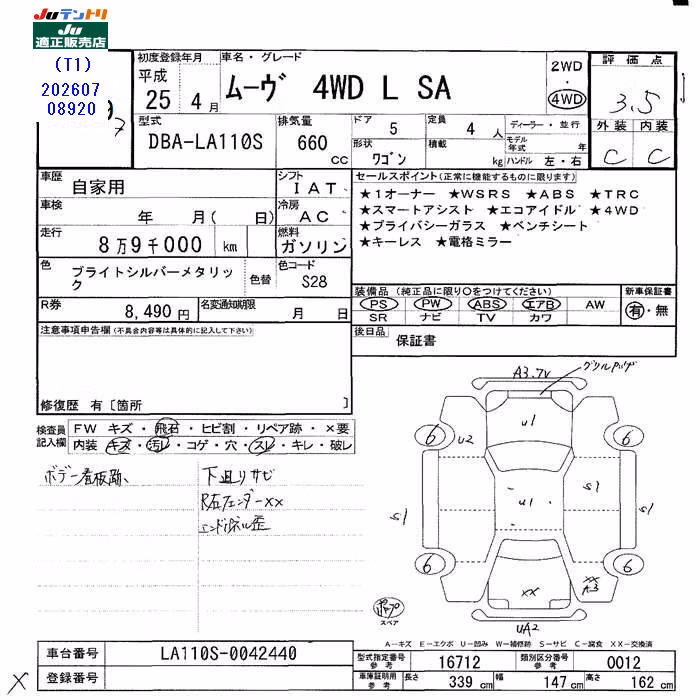 Juテントリ
Ju
適正販売店
(T1)
202607
08920
初度登録年月
平成
25年 4月
車名・グレード
ムーヴ 4WD L SA
2WD
・
4WD
評価点
3.5
外装 内装
C C
型式
DBA-LA110S
排気量
660
cc
ドア 5
形状 ワゴン
定員 4 人
積載 kg
ディーラー・並行
モデル年式 年
ハンドル 左・右
車歴 自家用
シフト IAT
車検 年 月( 日)
冷房 AC
走行 8万9千000 km
燃料 ガソリン
色 ブライトシルバーメタリック
色替
色コード S28
R券 8,490円
名変通知期限 月 日
セールスポイント(正常に機能するものに限ります)
★1オーナー ★WSRS ★ABS ★TRC
★スマートアシスト ★エコアイドル ★4WD
★プライバシーガラス ★ベンチシート
★キーレス ★電格ミラー
装備品(純正品に限り○をつけてください)
PS PW ABS エアB AW
SR ナビ TV カワ
新車保証書
有・無
後日品 保証書
注意事項申告欄(不具合内容等は具体的に記入して下さい)
修復歴 有〔箇所 〕
検査員記入欄
FW キズ・飛石・ヒビ割・リペア跡・×要
内装 キズ・汚レ・コゲ・穴・スレ・キレ・破レ
ボデー看板跡、
下廻りサビ
R右フェンダーXX
エンドパネル歪
A3.7V
u1
6
u2
6
s1
u1
s1
s1
6
6
XX
XX
A3
スペア
UA2
A-キズ E-エクボ U-凹み W-補修跡 S-サビ C-腐食 XX-交換済
車台番号 LA110S-0042440
登録番号
型式指定番号 参考 16712
類別区分番号 参考 0012
車庫証明用 参考 長さ 339 cm 幅 147 cm 高さ 162 cm
X